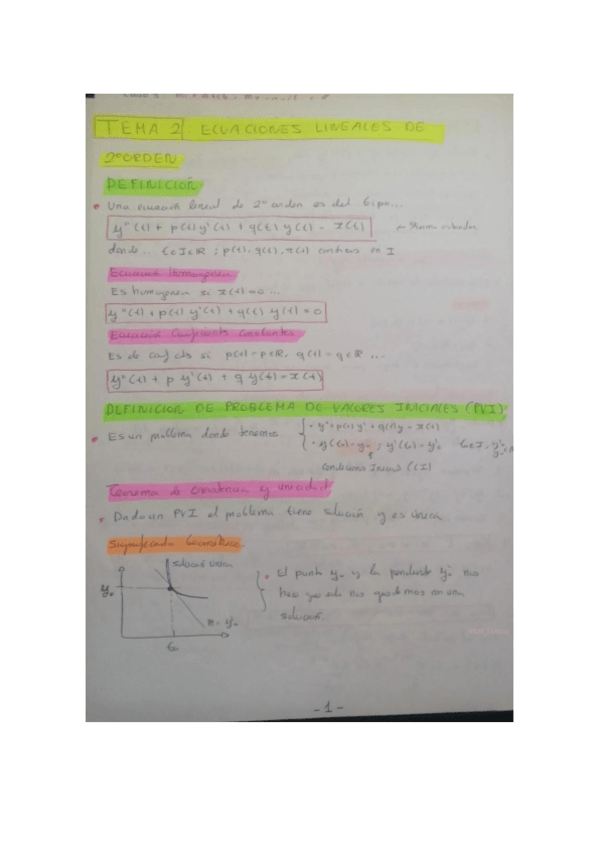 TEMA 2 ECUACIONES LINEALES DE
2º ORDEN
DEFINICIÓN
• Una ecuación lineal de 2º orden es del tipo...
y''(t) + p(t) y'(t) + q(t) y(t) = r(t)
donde... t∈I⊂ℝ ; p(t), q(t), r(t) continuas en I
Ecuación Homogénea
Es homogénea si r(t)=0 ...
y''(t) + p(t) y'(t) + q(t) y(t) = 0
Ecuación Coeficientes constantes
Es de coef cts si p(t)=p∈ℝ, q(t)=q∈ℝ ...
y''(t) + p y'(t) + q y(t) = r(t)
DEFINICION DE PROBLEMA DE VALORES INICIALES (PVI)
• Es un problema donde tenemos
• y''+p(t) y' + q(t)y = r(t)
• y(t₀)=y₀ ; y'(t₀)=y'₀ t₀∈I,
Condiciones Iniciales (CI)
Teorema de existencia y unicidad
• Dado un PVI el problema tiene solución y es única
Significado Geométrico
solución única
y₀
m = y'₀
t₀
• El punto y₀ y la pendiente y'₀ nos
hace que solo nos quedemos con una
solución.
- 1 -